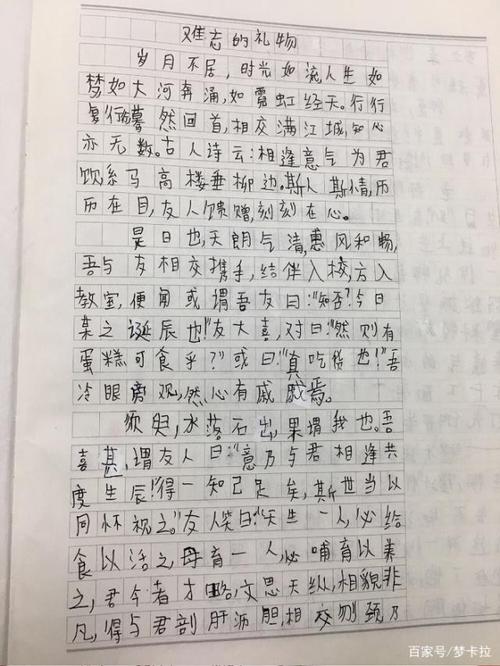 难忘的礼物
岁月不居，时光如流人生如
梦如大河奔涌，如霓虹经天。行行
复行行，蓦然回首，相交满江城，知心
亦无数。古人诗云：相逢意气为君
饮，系马高楼垂柳边。斯人斯情，历
历在目，友人馈赠，刻刻在心。
是日也，天朗气清，惠风和畅，
吾与友相交携手，结伴入校方入
教室，便闻或谓吾友曰：“知否？今日
某之诞辰也！”友大喜，对曰：“然则有
蛋糕可食乎？”或曰：“真吃货也！”吾
冷眼旁观，然心有戚戚焉。
须臾，水落石出，果谓我也。吾
喜甚，谓友人曰：“意乃与君相逢共
度生辰！得一知己足矣，斯世当以
同怀视之。”友人笑曰：“天生一人，必给
食以活之，母育一人，必哺育以美
之，君今者才略，文思天纵，相貌非
凡，得与君剖肝沥胆，相交刎颈乃
百家号/梦卡拉